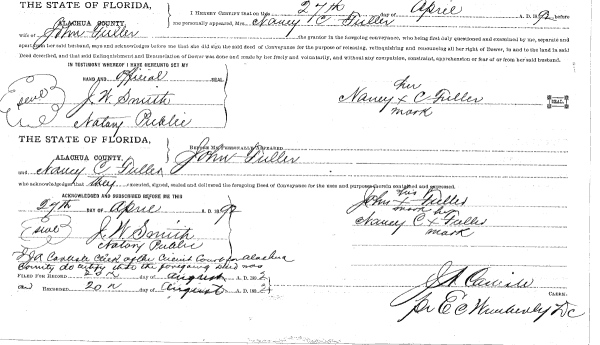 THE STATE OF FLORIDA,
ALACHUA COUNTY.
I HEREBY CERTIFY that on this 27th day of April A. D. 1892 before
me personally appeared, Mrs. Nancy C Fuller
wife of John Fuller the grantor in the foregoing conveyance, who being first duly questioned and examined by me, separate and
apart from her said husband, says and acknowledges before me that she did sign the said deed of Conveyance for the purpose of releasing, relinquishing and renouncing all her right of Dower, in and to the land in said
Deed described, and that said Relinquishment and Renunciation of Dower was done and made by her freely and voluntarily, and without any compulsion, constraint, apprehension or fear of or from her said husband.
IN TESTIMONY WHEREOF I HAVE HEREUNTO SET MY
HAND AND official SEAL
seal
J. W. Smith
Notary Public
her
Nancy x C Fuller
mark
SEAL
THE STATE OF FLORIDA,
ALACHUA COUNTY,
BEFORE ME PERSONALLY APPEARED
John Fuller
and Nancy C. Fuller
who acknowledges that they executed, signed, sealed and delivered the foregoing Deed of Conveyance for the uses and purposes therein contained and expressed.
ACKNOWLEDGED AND SUBSCRIBED BEFORE ME THIS
27th DAY OF April A. D. 1892
seal
J. W. Smith
Notary Public
his
John x Fuller
mark her
Nancy C x Fuller
mark
Clerk of the Circuit Court for Alachua
County do certify that the foregoing deed was
FILED FOR RECORD 20 day of August A. D. 1892
and RECORDED 20 day of August 1892
CLERK.
pr E C Wimberley DC